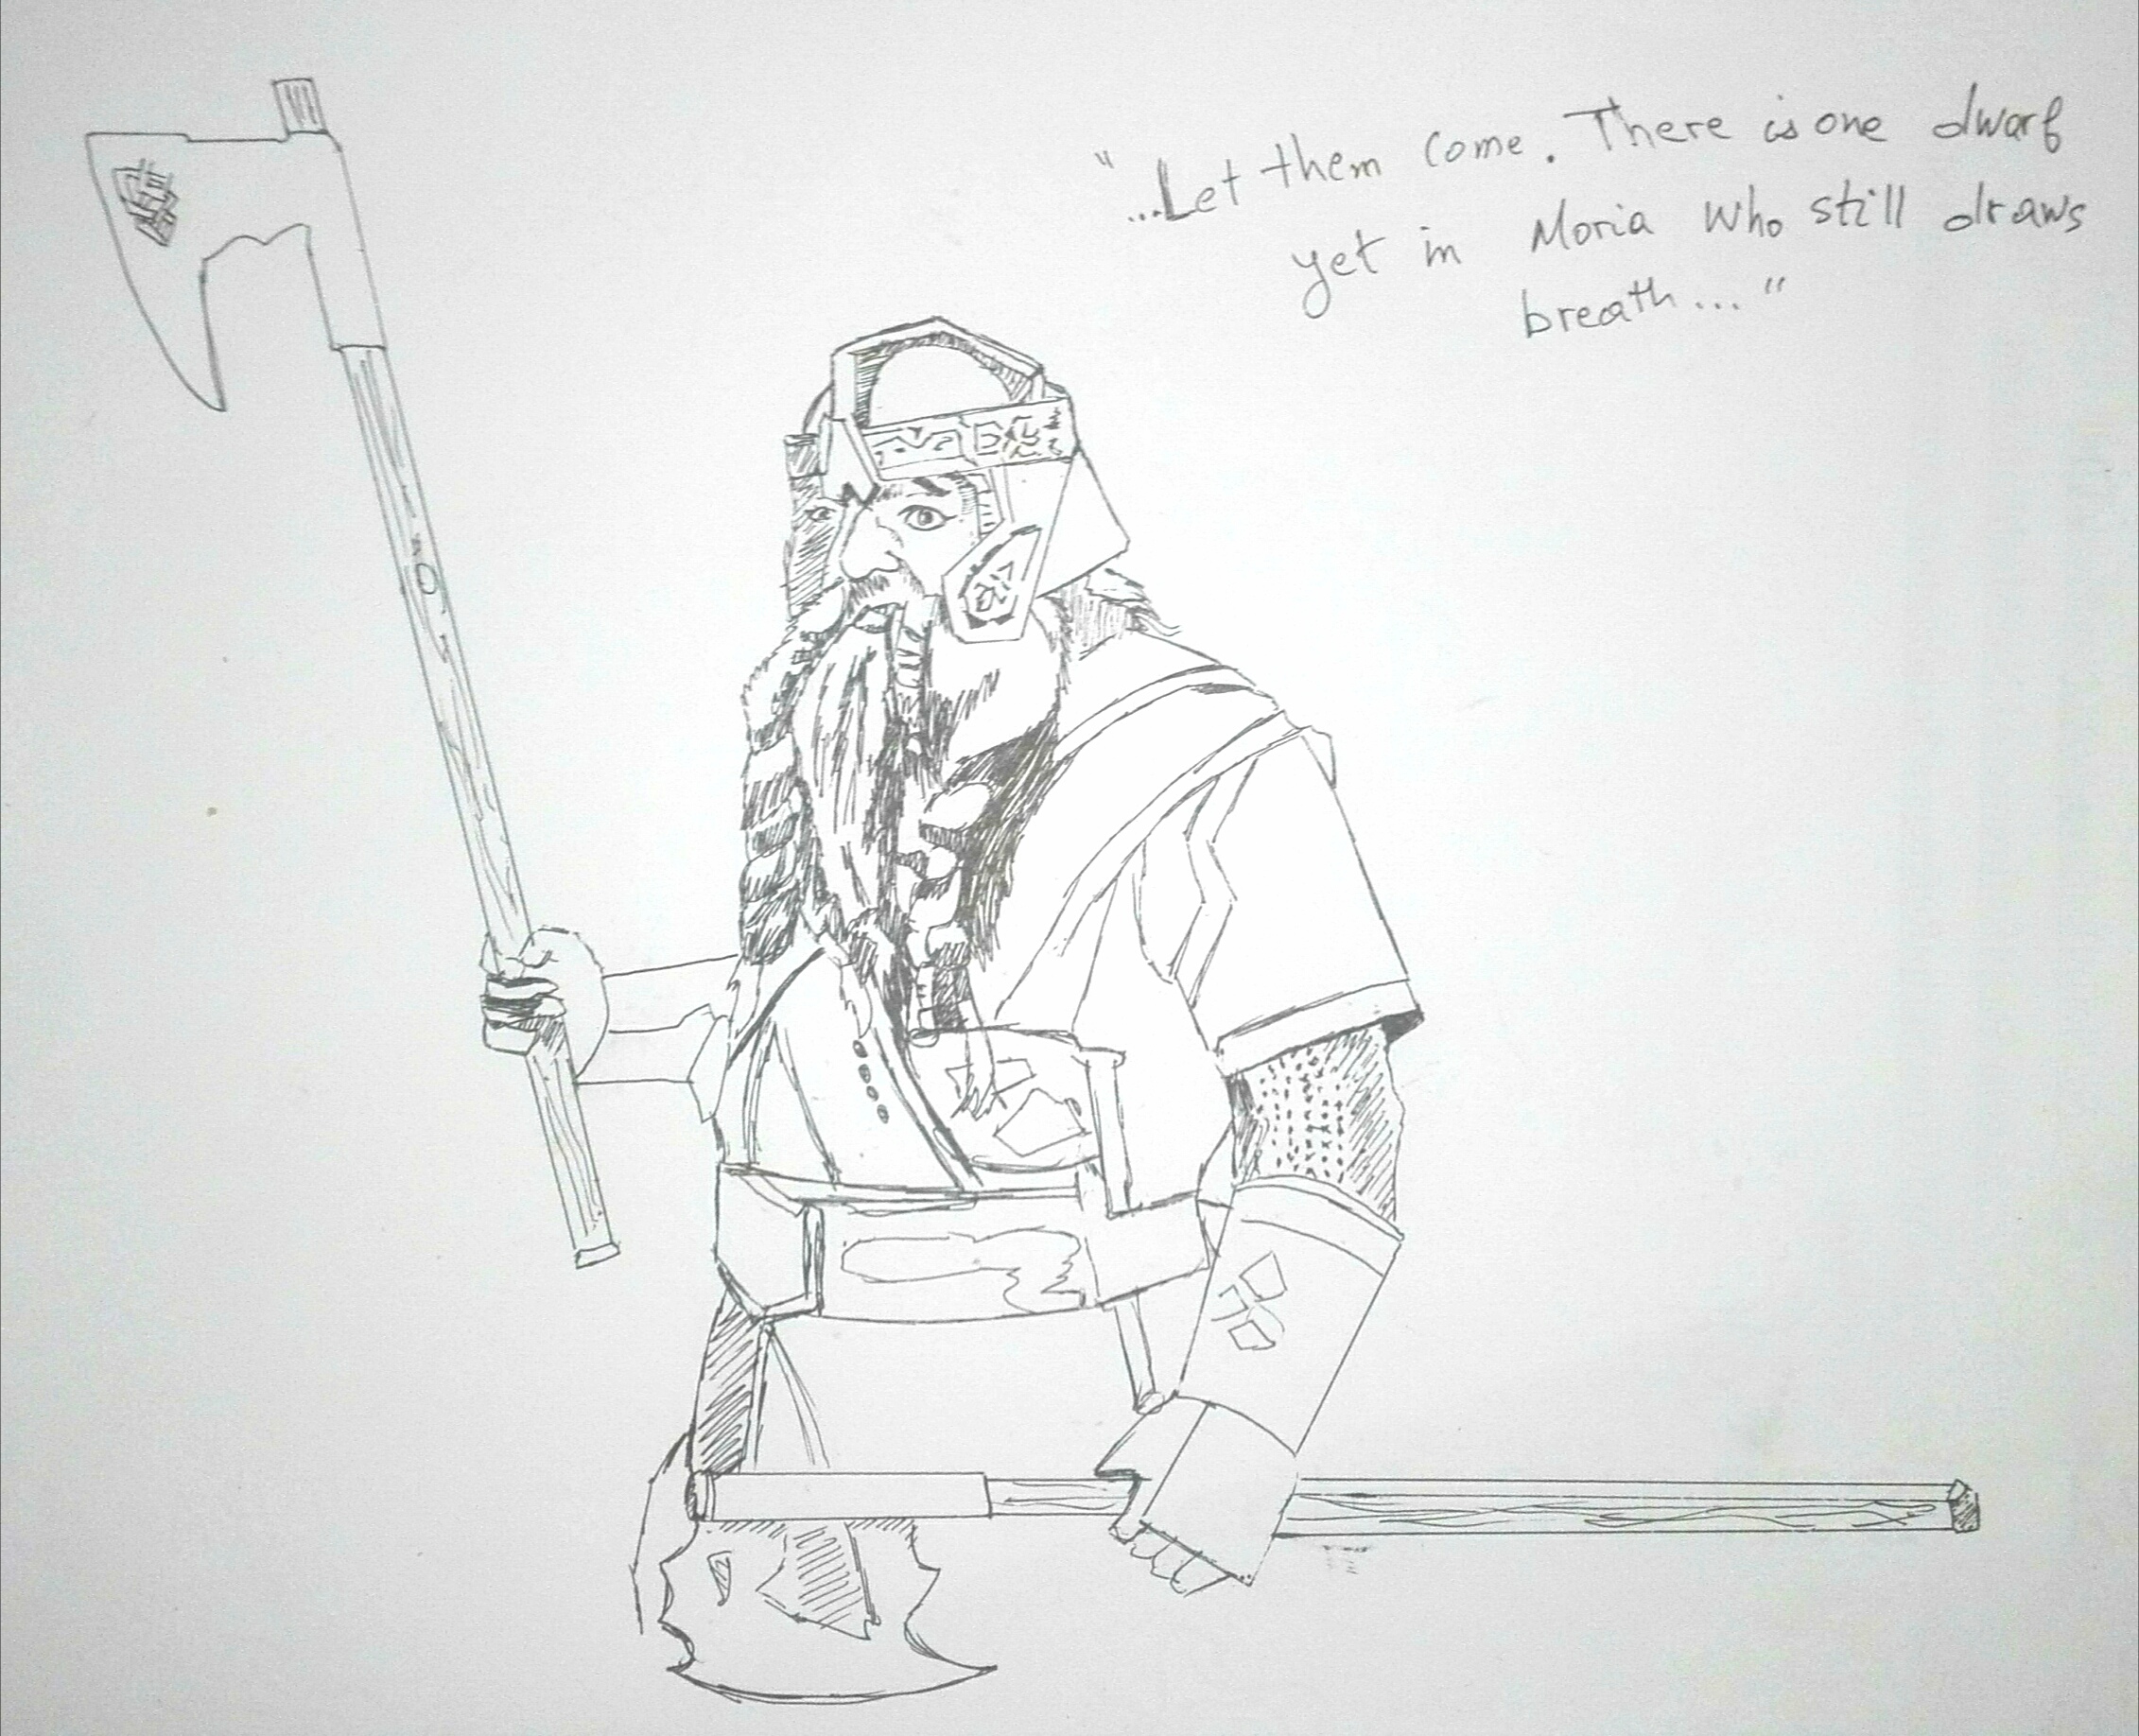 "...Let them come. There is one dwarf
yet in Moria who still draws
breath..."